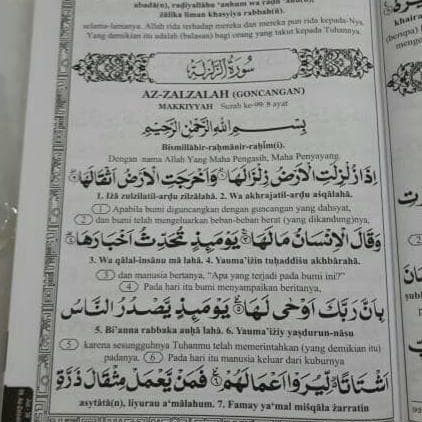 abadā(n), raḍiyallāhu ‘anhum wa raḍū ‘anh(u),
żālika liman khasyiya rabbah(ū).
selama-lamanya. Allah rida terhadap mereka dan mereka pun rida kepada-Nya.
Yang demikian itu adalah (balasan) bagi orang yang takut kepada Tuhannya.
سُورَةُ الزَّلْزَلَةِ
AZ-ZALZALAH (GONCANGAN)
MAKKIYYAH Surah ke-99: 8 ayat
بِسْمِ اللّٰهِ الرَّحْمٰنِ الرَّحِيْمِ
Bismillāhir-raḥmānir-raḥīm(i).
Dengan nama Allah Yang Maha Pengasih, Maha Penyayang.
اِذَا زُلْزِلَتِ الْاَرْضُ زِلْزَالَهَاۙ ۝١ وَاَخْرَجَتِ الْاَرْضُ اَثْقَالَهَاۙ ۝٢
1. Iżā zulzilatil-arḍu zilzālahā. 2. Wa akhrajatil-arḍu aṡqālahā.
1 Apabila bumi diguncangkan dengan guncangan yang dahsyat,
2 dan bumi telah mengeluarkan beban-beban berat (yang dikandungnya),
وَقَالَ الْاِنْسَانُ مَا لَهَاۚ ۝٣ يَوْمَىِٕذٍ تُحَدِّثُ اَخْبَارَهَاۙ ۝٤
3. Wa qālal-insānu mā lahā. 4. Yauma'iżin tuḥaddiṡu akhbārahā.
3 dan manusia bertanya, "Apa yang terjadi pada bumi ini?"
4 Pada hari itu bumi menyampaikan beritanya,
بِاَنَّ رَبَّكَ اَوْحٰى لَهَاۗ ۝٥ يَوْمَىِٕذٍ يَّصْدُرُ النَّاسُ
5. Bi'anna rabbaka auḥā lahā. 6. Yauma'iżiy yaṣdurun-nāsu
5 karena sesungguhnya Tuhanmu telah memerintahkan (yang demikian itu)
padanya. 6 Pada hari itu manusia keluar dari kuburnya
اَشْتَاتًا ەۙ لِّيُرَوْا اَعْمَالَهُمْۗ ۝٦ فَمَنْ يَّعْمَلْ مِثْقَالَ ذَرَّةٍ
asytātā(n), liyurau a‘mālahum. 7. Famay ya‘mal miṡqāla żarratin